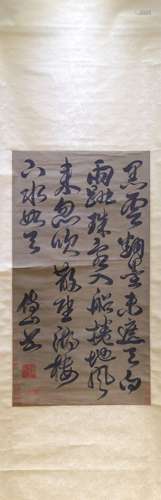 黑雲翻墨未遮山白
雨跳珠亂入船捲地風
來忽吹散望湖樓
下水如天 傅山書